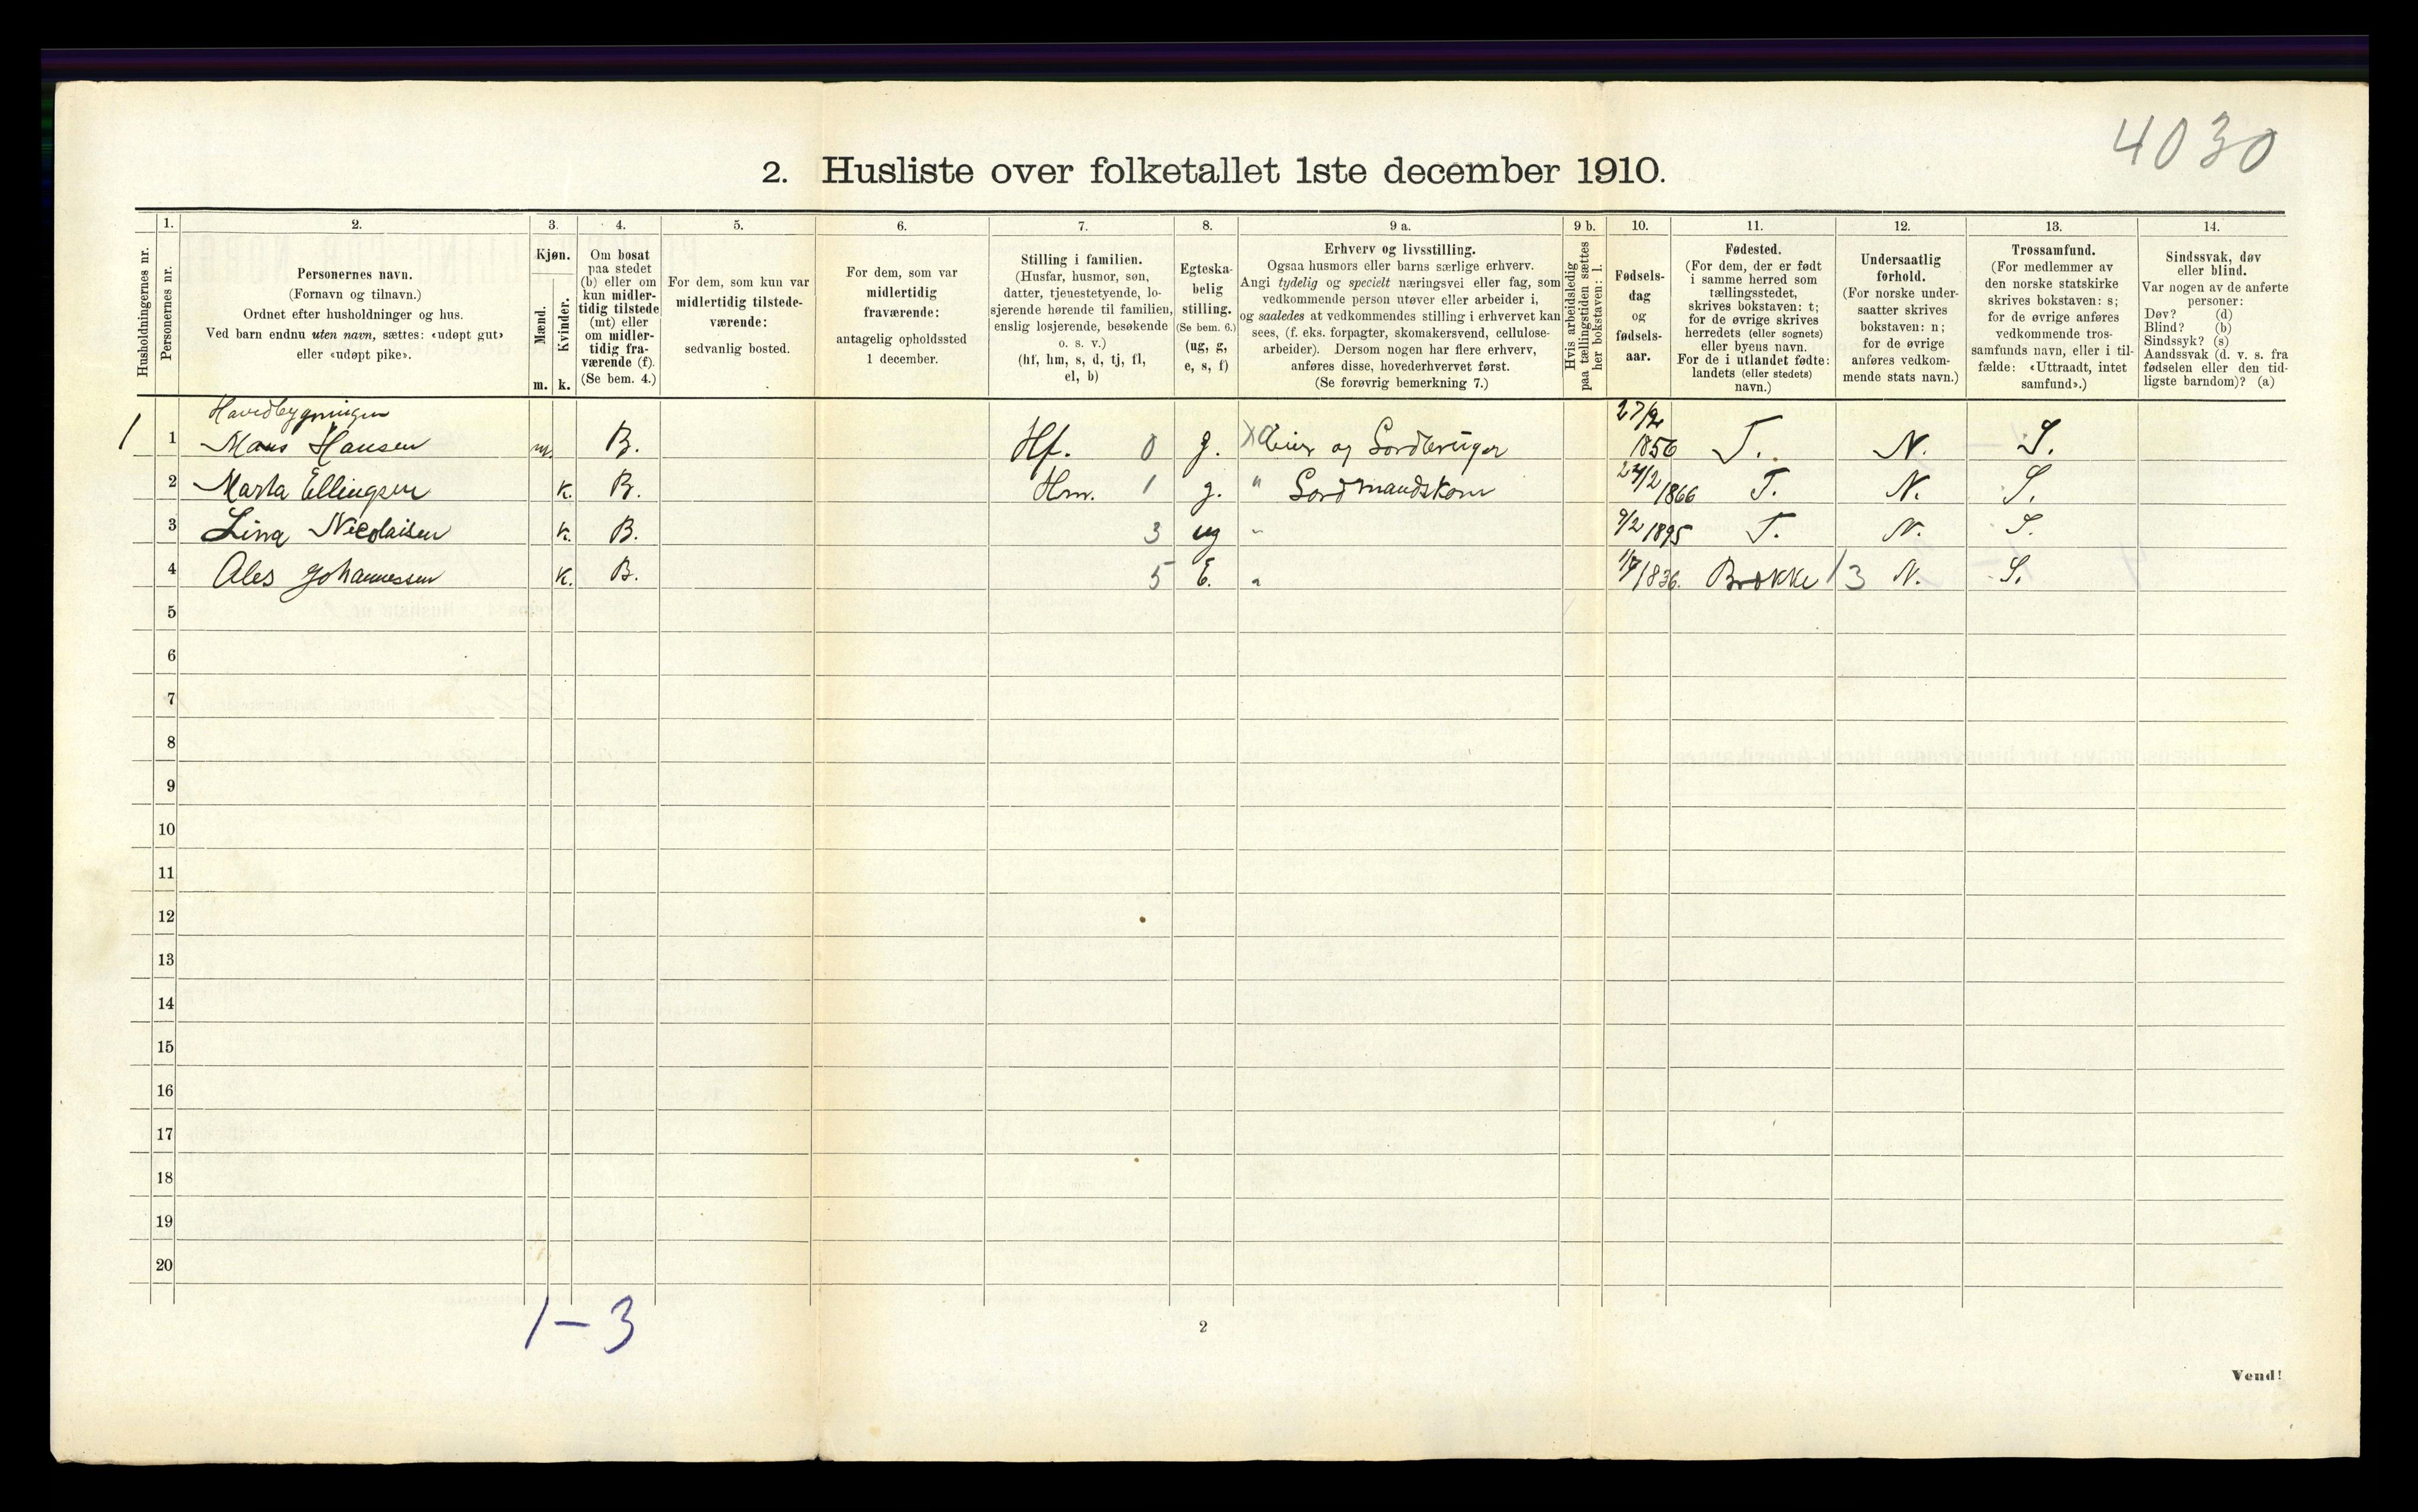 4030
2. Husliste over folketallet 1ste december 1910.
Husholdningernes nr.
1.
Personernes nr.
2.
Personernes navn.
(Fornavn og tilnavn.)
Ordnet efter husholdninger og hus.
Ved barn endnu uten navn, sættes: «udøpt gut»
eller «udøpt pike».
3.
Kjøn.
Mænd.
Kvinder.
m. k.
4.
Om bosat
paa stedet
(b) eller om
kun midler-
tidig tilstede
(mt) eller
om midler-
tidig fra-
værende (f).
(Se bem. 4.)
5.
For dem, som kun var
midlertidig tilstede-
værende:
sedvanlig bosted.
6.
For dem, som var
midlertidig
fraværende:
antagelig opholdssted
1 december.
7.
Stilling i familien.
(Husfar, husmor, søn,
datter, tjenestetyende, lo-
sjerende hørende til familien,
enslig losjerende, besøkende
o. s. v.)
(hf, hm, s, d, tj, fl,
el, b)
8.
Egteska-
belig
stilling.
(Se bem. 6.)
(ug, g,
e, s, f)
9 a.
Erhverv og livsstilling.
Ogsaa husmors eller barns særlige erhverv.
Angi tydelig og specielt næringsvei eller fag, som
vedkommende person utøver eller arbeider i,
og saaledes at vedkommendes stilling i erhvervet kan
sees, (f. eks. forpagter, skomakersvend, cellulose-
arbeider). Dersom nogen har flere erhverv,
anføres disse, hovederhvervet først.
(Se forøvrig bemerkning 7.)
9 b.
Hvis arbeidsledig
paa tællingstiden sættes
her bokstaven: l.
10.
Fødsels-
dag
og
fødsels-
aar.
11.
Fødested.
(For dem, der er født
i samme herred som
tællingsstedet,
skrives bokstaven: t;
for de øvrige skrives
herredets (eller sognets)
eller byens navn.
For de i utlandet fødte:
landets (eller stedets)
navn.)
12.
Undersaatlig
forhold.
(For norske under-
saatter skrives
bokstaven: n;
for de øvrige
anføres vedkom-
mende stats navn.)
13.
Trossamfund.
(For medlemmer av
den norske statskirke
skrives bokstaven: s;
for de øvrige anføres
vedkommende tros-
samfunds navn, eller i til-
fælde: «Uttraadt, intet
samfund».)
14.
Sindssvak, døv
eller blind.
Var nogen av de anførte
personer:
Døv? (d)
Blind? (b)
Sindssyk? (s)
Aandssvak (d. v. s. fra
fødselen eller den tid-
ligste barndom)? (a)
Hovedbygningen
1 1 Mans Hansen m. B. Hf. 0 g. X Eier og Gordbruger 27/2 1856 T. N. S.
2 Marta Ellingsen k. B. Hm. 1 g. " Gordmandskone 24/2 1866 T. N. S.
3 Lina Nicolaisen k. B. 3 ug " 9/2 1895 T. N. S.
4 Ales Johannessen k. B. 5 E. " 1836. Brække 13 N. S.
5
6
7
8
9
10
11
12
13
14
15
16
17
18
19
20
1-3
2
Vend!